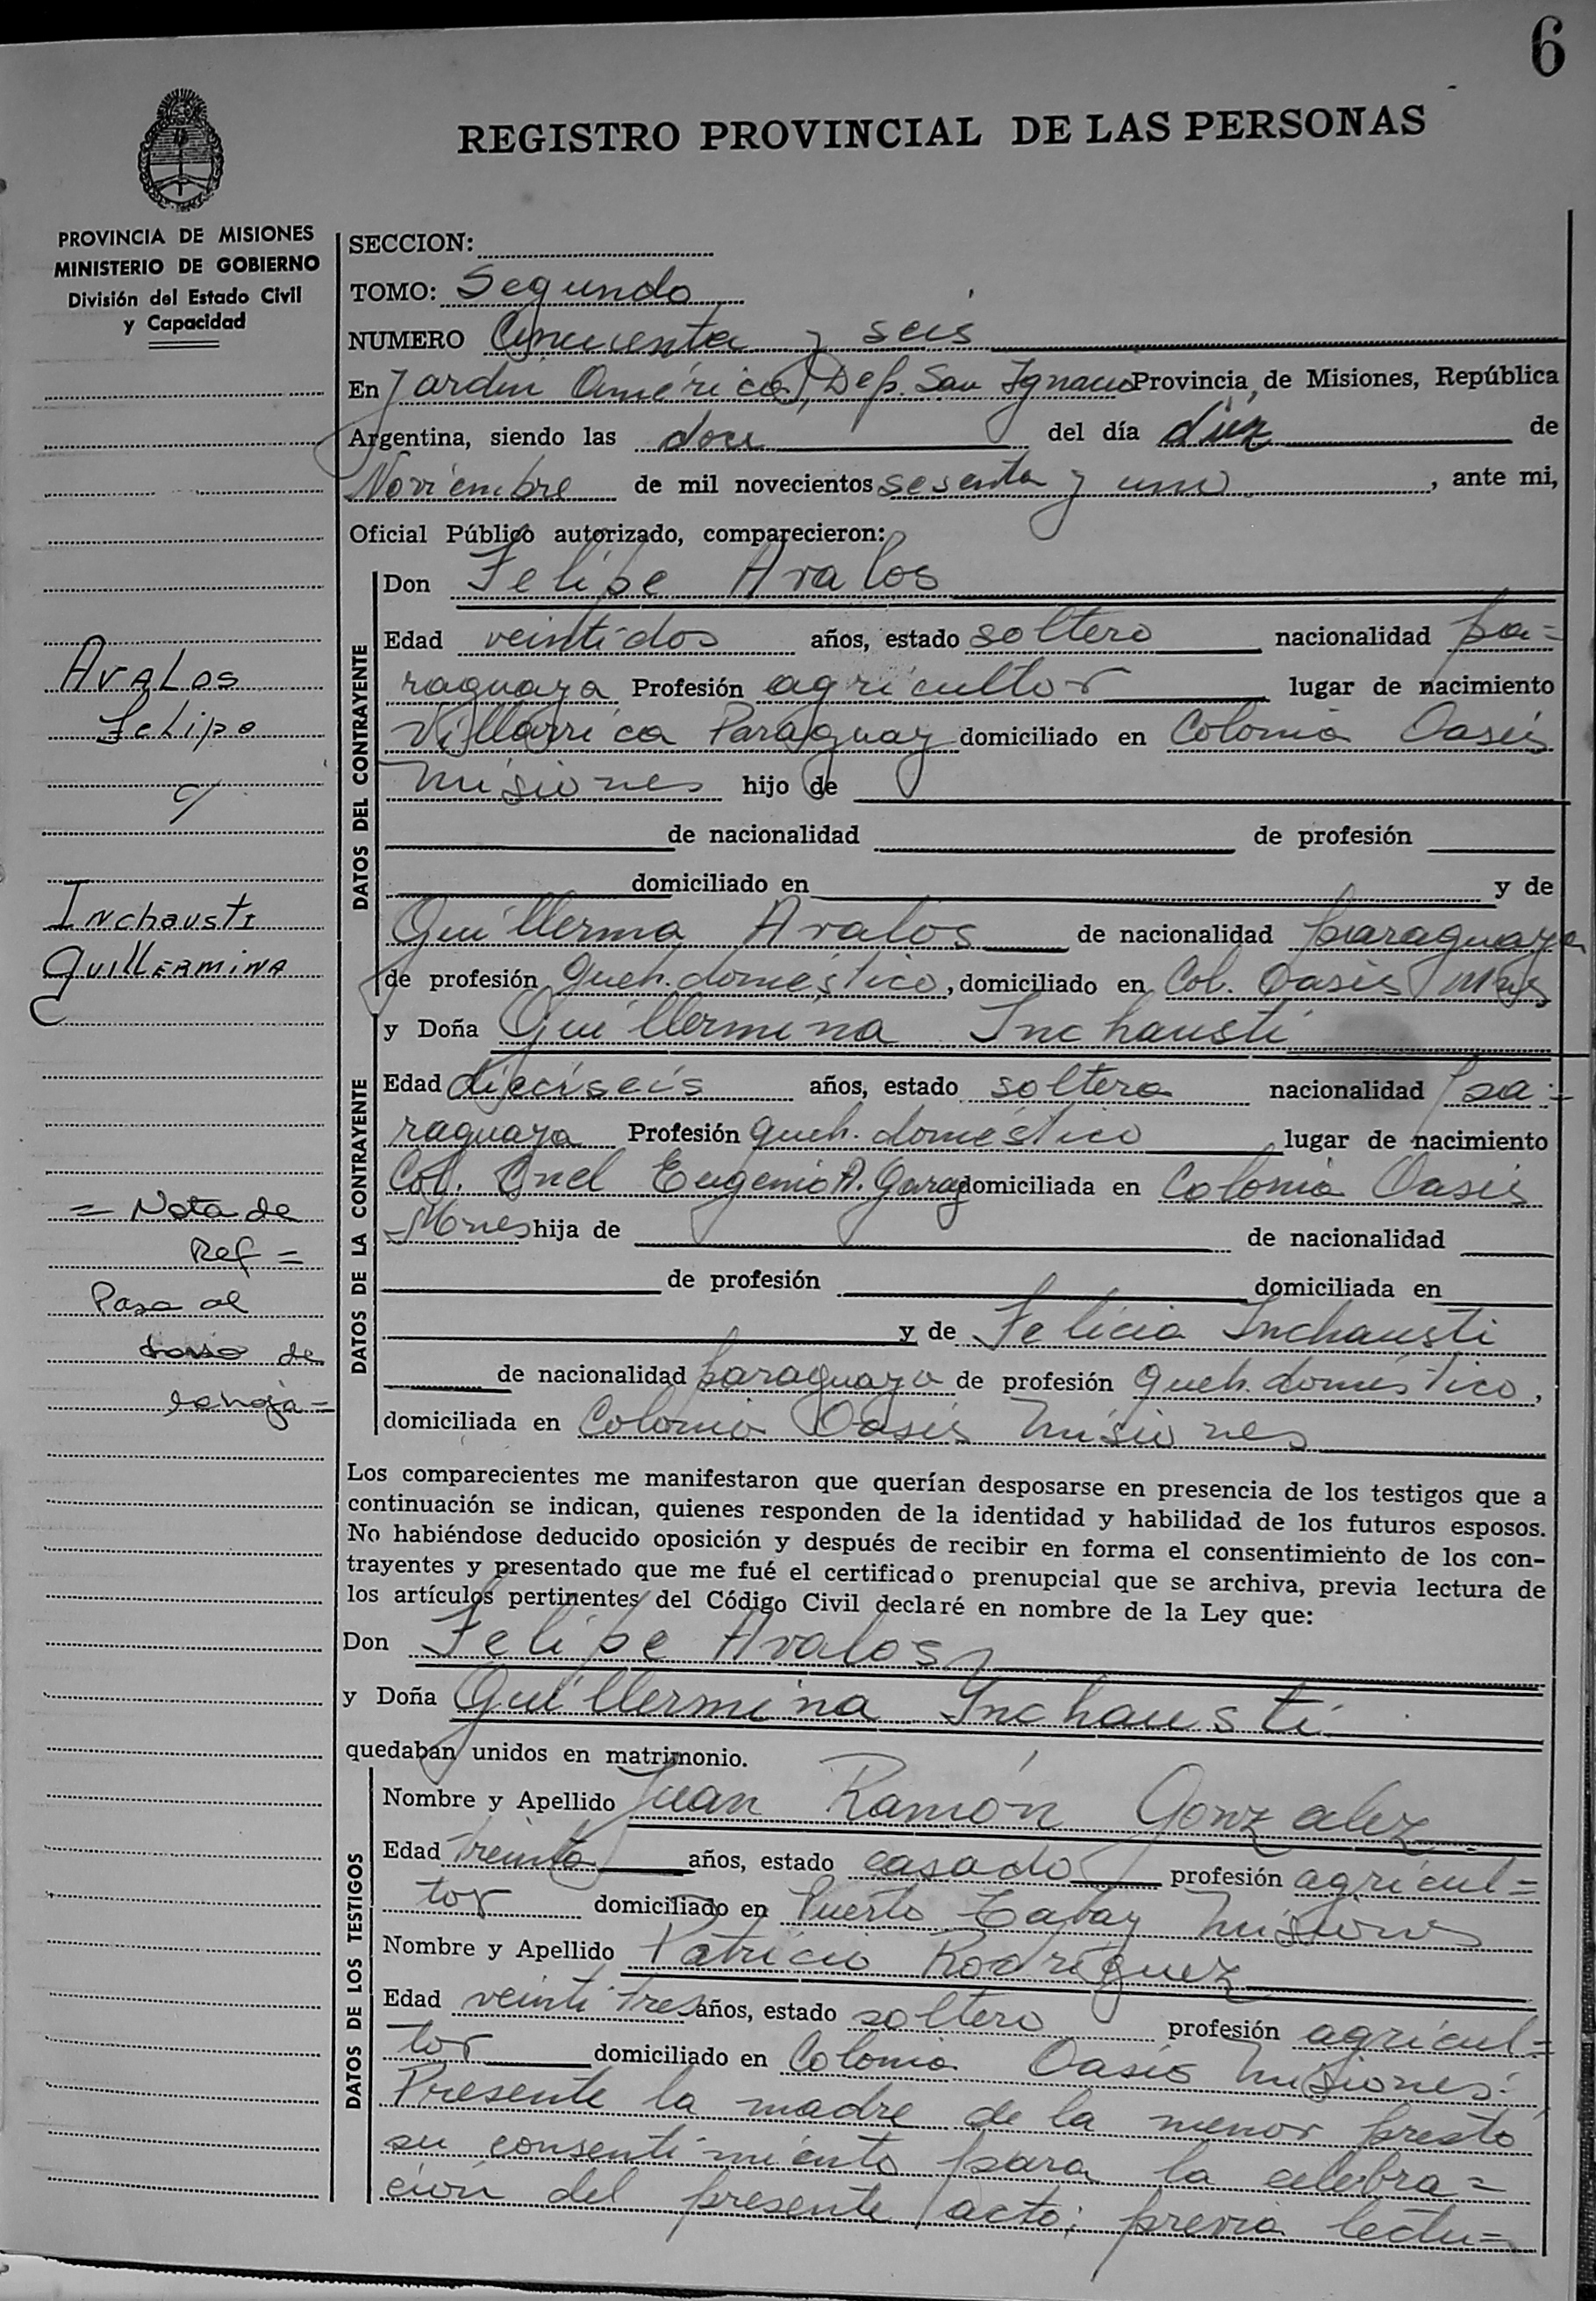 6
REGISTRO PROVINCIAL DE LAS PERSONAS
PROVINCIA DE MISIONES
MINISTERIO DE GOBIERNO
División del Estado Civil
y Capacidad
Avalos
Felipe
c/
Inchausti
Guillermina
= Nota de
Ref =
Pasa al
dorso de
la hoja =
SECCION:
TOMO: Segundo
NUMERO Cincuenta y seis
En Jardin América, Dep. San Ignacio Provincia de Misiones, República
Argentina, siendo las doce del día diez de
Noviembre de mil novecientos sesenta y uno, ante mi,
Oficial Público autorizado, comparecieron:
DATOS DEL CONTRAYENTE
Don Felipe Avalos
Edad veintidos años, estado soltero nacionalidad pa=
raguaya Profesión agricultor lugar de nacimiento
Villarrica Paraguay domiciliado en Colonia Oasis
Misiones hijo de
de nacionalidad de profesión
domiciliado en y de
Guillerma Avalos de nacionalidad paraguaya
de profesión queh. doméstico, domiciliado en Col. Oasis Mnes
DATOS DE LA CONTRAYENTE
y Doña Guillermina Inchausti
Edad dieciseis años, estado soltera nacionalidad pa=
raguaya Profesión queh. doméstico lugar de nacimiento
Col. Cnel Eugenio A. Garay domiciliada en Colonia Oasis
Mnes hija de de nacionalidad
de profesión domiciliada en
y de Felicia Inchausti
de nacionalidad paraguaya de profesión queh. domestico,
domiciliada en Colonia Oasis Misiones
Los comparecientes me manifestaron que querían desposarse en presencia de los testigos que a
continuación se indican, quienes responden de la identidad y habilidad de los futuros esposos.
No habiéndose deducido oposición y después de recibir en forma el consentimiento de los con-
trayentes y presentado que me fué el certificado prenupcial que se archiva, previa lectura de
los artículos pertinentes del Código Civil declaré en nombre de la Ley que:
Don Felipe Avalos
y Doña Guillermina Inchausti
quedaban unidos en matrimonio.
DATOS DE LOS TESTIGOS
Nombre y Apellido Juan Ramón Gonzalez
Edad Treinta años, estado casado profesión agricul=
tor domiciliado en Puerto Tabay Misiones
Nombre y Apellido Patricio Rodríguez
Edad veintitres años, estado soltero profesión agricul=
tor domiciliado en Colonia Oasis Misiones.
Presente la madre de la menor presto
su consentimiento para la celebra=
ción del presente acto; previa lectu=